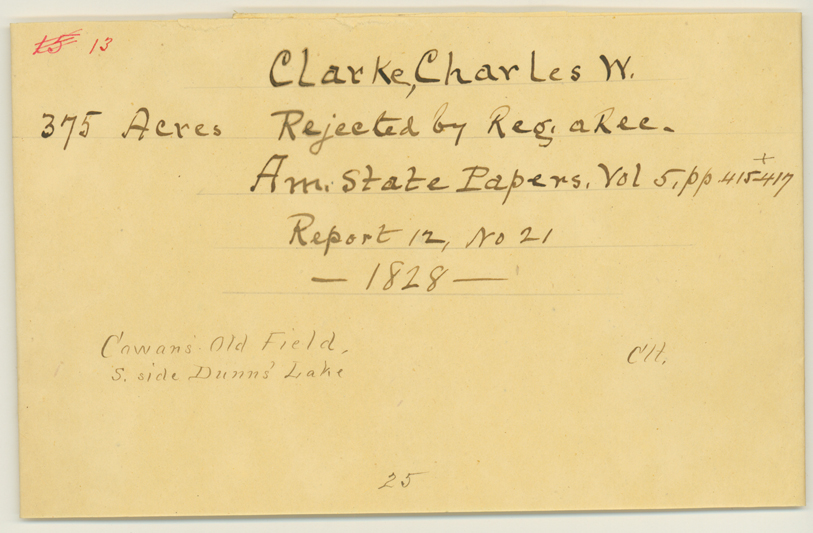 15 13
Clarke, Charles W.
375 Acres Rejected by Reg. a Rec.
Am. State Papers, Vol 5, pp 415-417
+
Report 12, No 21
— 1828 —
Cowans Old Field,
S. side Dunns' Lake
Clt.
25